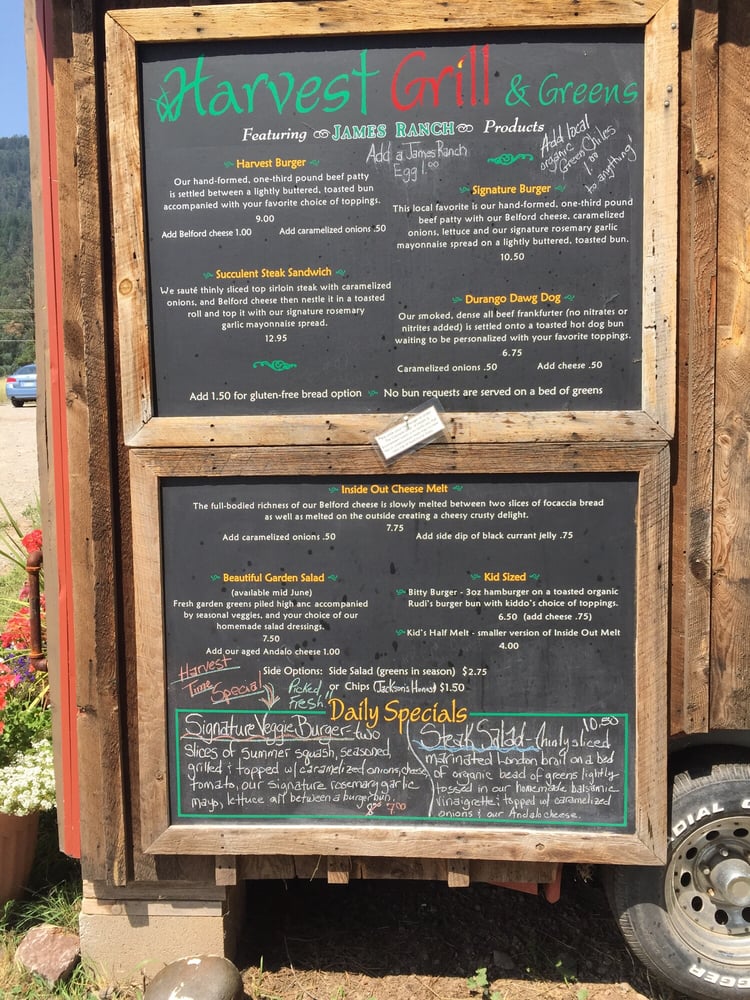 Harvest Grill & Greens
Featuring JAMES RANCH Products
Add a James Ranch
Egg 1.00
Add local
organic
Green Chiles
1.00
to anything!
Harvest Burger
Our hand-formed, one-third pound beef patty
is settled between a lightly buttered, toasted bun
accompanied with your favorite choice of toppings.
9.00
Add Belford cheese 1.00 Add caramelized onions .50
Signature Burger
This local favorite is our hand-formed, one-third pound
beef patty with our Belford cheese, caramelized
onions, lettuce and our signature rosemary garlic
mayonnaise spread on a lightly buttered, toasted bun.
10.50
Succulent Steak Sandwich
We sauté thinly sliced top sirloin steak with caramelized
onions, and Belford cheese then nestle it in a toasted
roll and top it with our signature rosemary
garlic mayonnaise spread.
12.95
Durango Dawg Dog
Our smoked, dense all beef frankfurter (no nitrates or
nitrites added) is settled onto a toasted hot dog bun
waiting to be personalized with your favorite toppings.
6.75
Caramelized onions .50 Add cheese .50
Add 1.50 for gluten-free bread option No bun requests are served on a bed of greens
Inside Out Cheese Melt
The full-bodied richness of our Belford cheese is slowly melted between two slices of focaccia bread
as well as melted on the outside creating a cheesy crusty delight.
7.75
Add caramelized onions .50 Add side dip of black currant jelly .75
Beautiful Garden Salad
(available mid June)
Fresh garden greens piled high anc accompanied
by seasonal veggies, and your choice of our
homemade salad dressings.
7.50
Add our aged Andalo cheese 1.00
Kid Sized
Bitty Burger - 3oz hamburger on a toasted organic
Rudi's burger bun with kiddo's choice of toppings.
6.50 (add cheese .75)
Kid's Half Melt - smaller version of Inside Out Melt
4.00
Side Options: Side Salad (greens in season) $2.75
or Chips (Jackson's Honest) $1.50
Harvest
Time
Special
Picked
fresh
Daily Specials
Signature Veggie Burger - two
slices of summer squash, seasoned,
grilled & topped w/ caramelized onions, cheese
tomato, our signature rosemary garlic
mayo, lettuce all between a burger bun.
7.00
10.50
Steak Salad - thinly sliced
marinated London broil on a bed
of organic bead of greens lightly
tossed in our homemade balsamic
vinaigrette & topped w/ caramelized
onions & our Andalo cheese.
DIAL